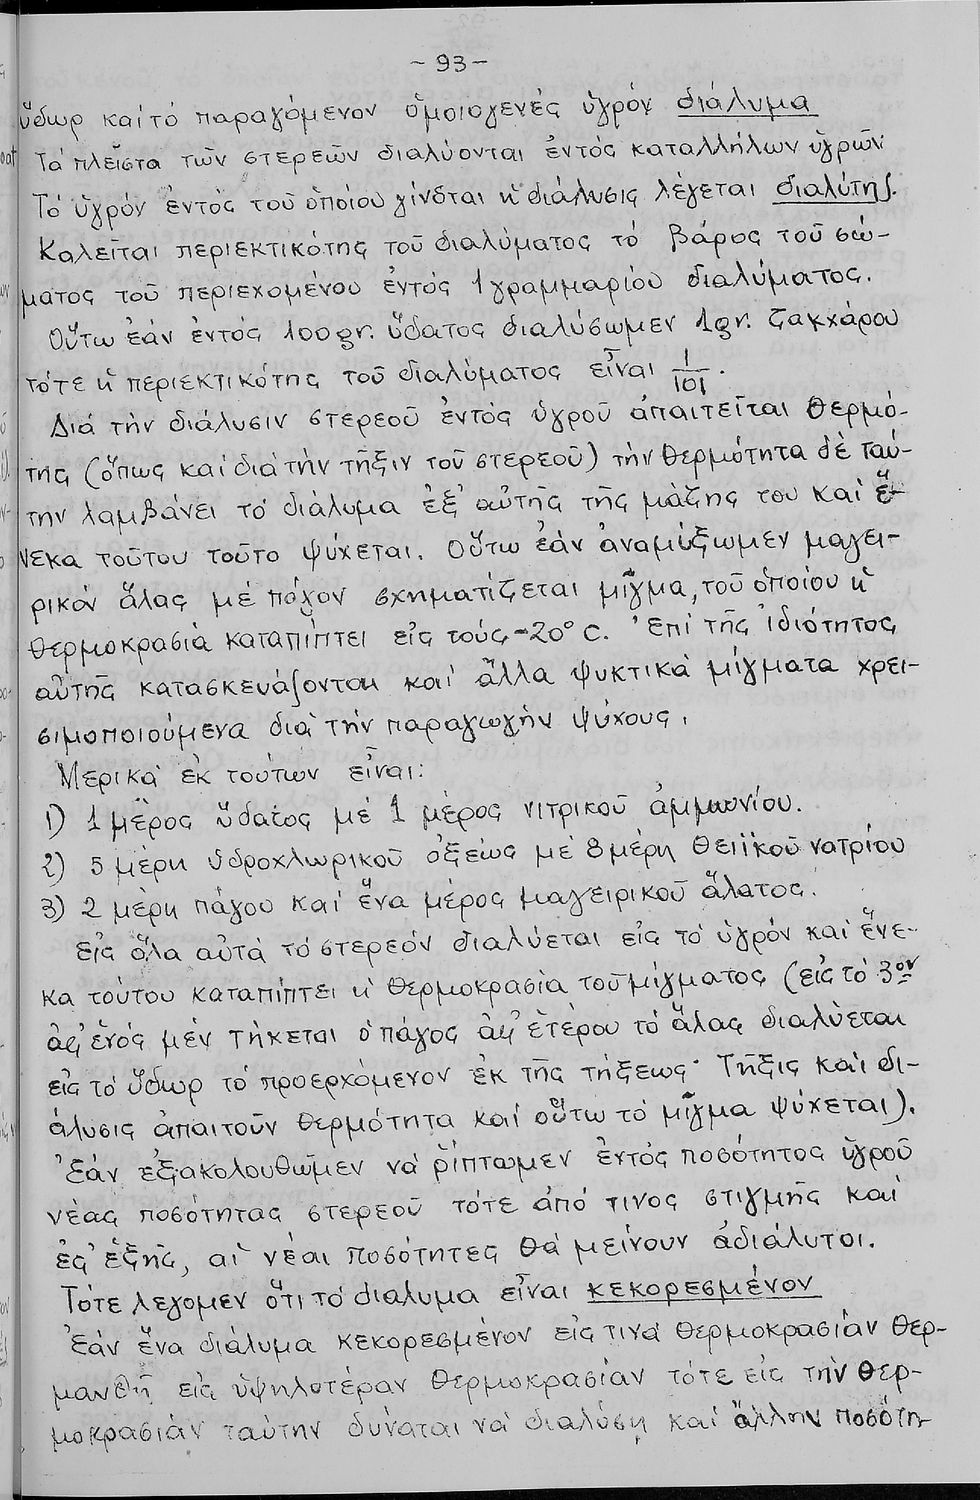 -93-
ὕδωρ καί τό παραγόμενον ὁμοιογενές ὑγρόν διάλυμα
Τά πλεῖστα τῶν στερεῶν διαλύονται ἐντός καταλλήλων ὑγρῶν
Τό ὑγρόν ἐντός τοῦ ὁποίου γίνεται ἡ διάλυσις λέγεται διαλύτης.
Καλεῖται περιεκτικότης τοῦ διαλύματος τό βάρος τοῦ σώ-
ματος τοῦ περιεχομένου ἐντός 1 γραμμαρίου διαλύματος.
Οὕτω ἐάν ἐντός 100 gr. ὕδατος διαλύσωμεν 1 gr. ζακχάρου
τότε ἡ περιεκτικότης τοῦ διαλύματος εἶναι 1/101.
Διά τήν διάλυσιν στερεοῦ ἐντός ὑγροῦ ἀπαιτεῖται θερμό-
της (ὅπως καί διά τήν τῆξιν τοῦ στερεοῦ) τήν θερμότητα δὲ ταύ-
την λαμβάνει τό διάλυμα ἐξ' αὐτῆς τῆς μάζης του καί ἕ-
νεκα τούτου τοῦτο ψύχεται. Οὕτω ἐάν ἀναμίξωμεν μαγει-
ρικόν ἅλας μέ πάγον σχηματίζεται μῖγμα, τοῦ ὁποίου ἡ
θερμοκρασία καταπίπτει εἰς τούς -20° C. Ἐπί τῆς ἰδιότητος
αὐτῆς κατασκευάζονται καί ἄλλα ψυκτικά μίγματα χρει-
σιμοποιούμενα διά τήν παραγωγήν ψύχους.
Μερικά ἐκ τούτων εἶναι:
1) 1 μέρος ὕδατος μέ 1 μέρος νιτρικοῦ ἀμμωνίου.
2) 5 μέρη ὑδροχλωρικοῦ ὀξέως μέ 8 μέρη θειϊκοῦ νατρίου
3) 2 μέρη πάγου καί ἕνα μέρος μαγειρικοῦ ἅλατος.
Εἰς ὅλα αὐτά τό στερεόν διαλύεται εἰς τό ὑγρόν καί ἕνε-
κα τούτου καταπίπτει ἡ θερμοκρασία τοῦ μίγματος (εἰς τό 3ον
ἀφ' ἑνός μέν τήκεται ὁ πάγος ἀφ' ἑτέρου τό ἅλας διαλύεται
εἰς τό ὕδωρ τό προερχόμενον ἐκ τῆς τήξεως· Τῆξις καί δι-
άλυσις ἀπαιτοῦν θερμότητα καί οὕτω τό μῖγμα ψύχεται).
Ἐάν ἐξακολουθῶμεν νά ῥίπτωμεν ἐντός ποσότητος ὑγροῦ
νέας ποσότητας στερεοῦ τότε ἀπό τινος στιγμῆς καί
ἐφ' ἑξῆς, αἱ νέαι ποσότητες θά μείνουν ἀδιάλυτοι.
Τότε λέγομεν ὅτι τό διάλυμα εἶναι κεκορεσμένον
Ἐάν ἕνα διάλυμα κεκορεσμένον εἰς τινά θερμοκρασίαν θερ-
μανθῇ εἰς ὑψηλοτέραν θερμοκρασίαν τότε εἰς τὴν θερ-
μοκρασίαν ταύτην δύναται νά διαλύσῃ καί ἄλλην ποσότη-